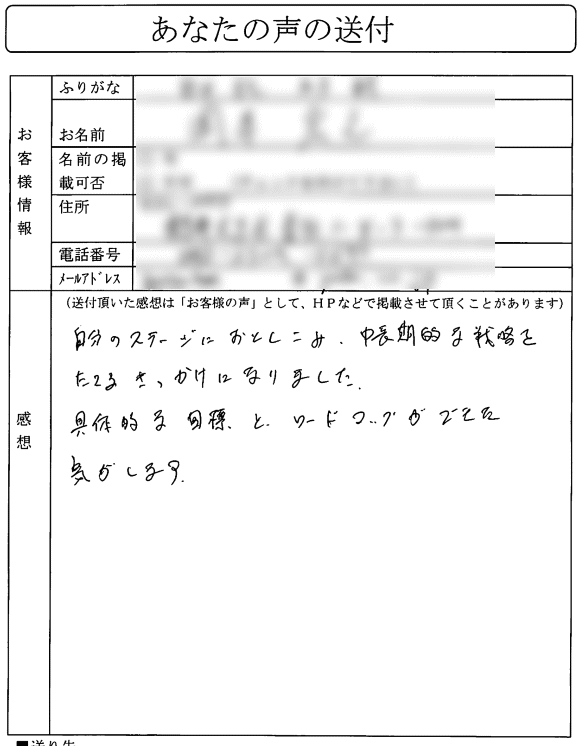 あなたの声の送付
ふりがな
お客様情報
お名前
名前の掲
載可否
住所
電話番号
メールアドレス
(送付頂いた感想は「お客様の声」として、HPなどで掲載させて頂くことがあります)
感想
自分のステージにおとしこみ、中長期的な戦略を
たてるきっかけになりました。
具体的な目標と、ロードマップができた
気がします。
■送り先